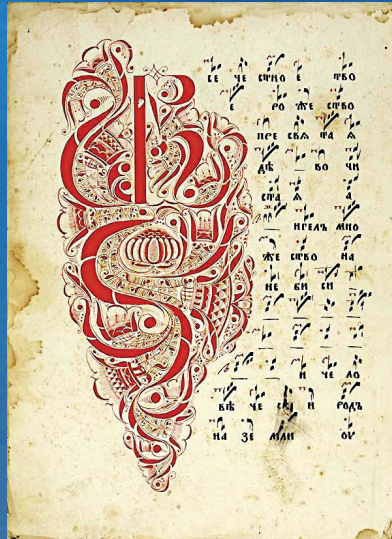 ЧЕ СТНО Е ТВО
Е РО ЖЕ СТВО
ПРЕ СВѦ ТА Ѧ
ДѢ ВО ЧИ
СТА Ѧ А
НГЕЛЪ МНО
ЖЕ СТВО НА
НЕ БИ СИ
И ЧЕ ЛО
ВѢ ЧЕ И РОДЪ
НА ЗЕ МЛИ ОУ